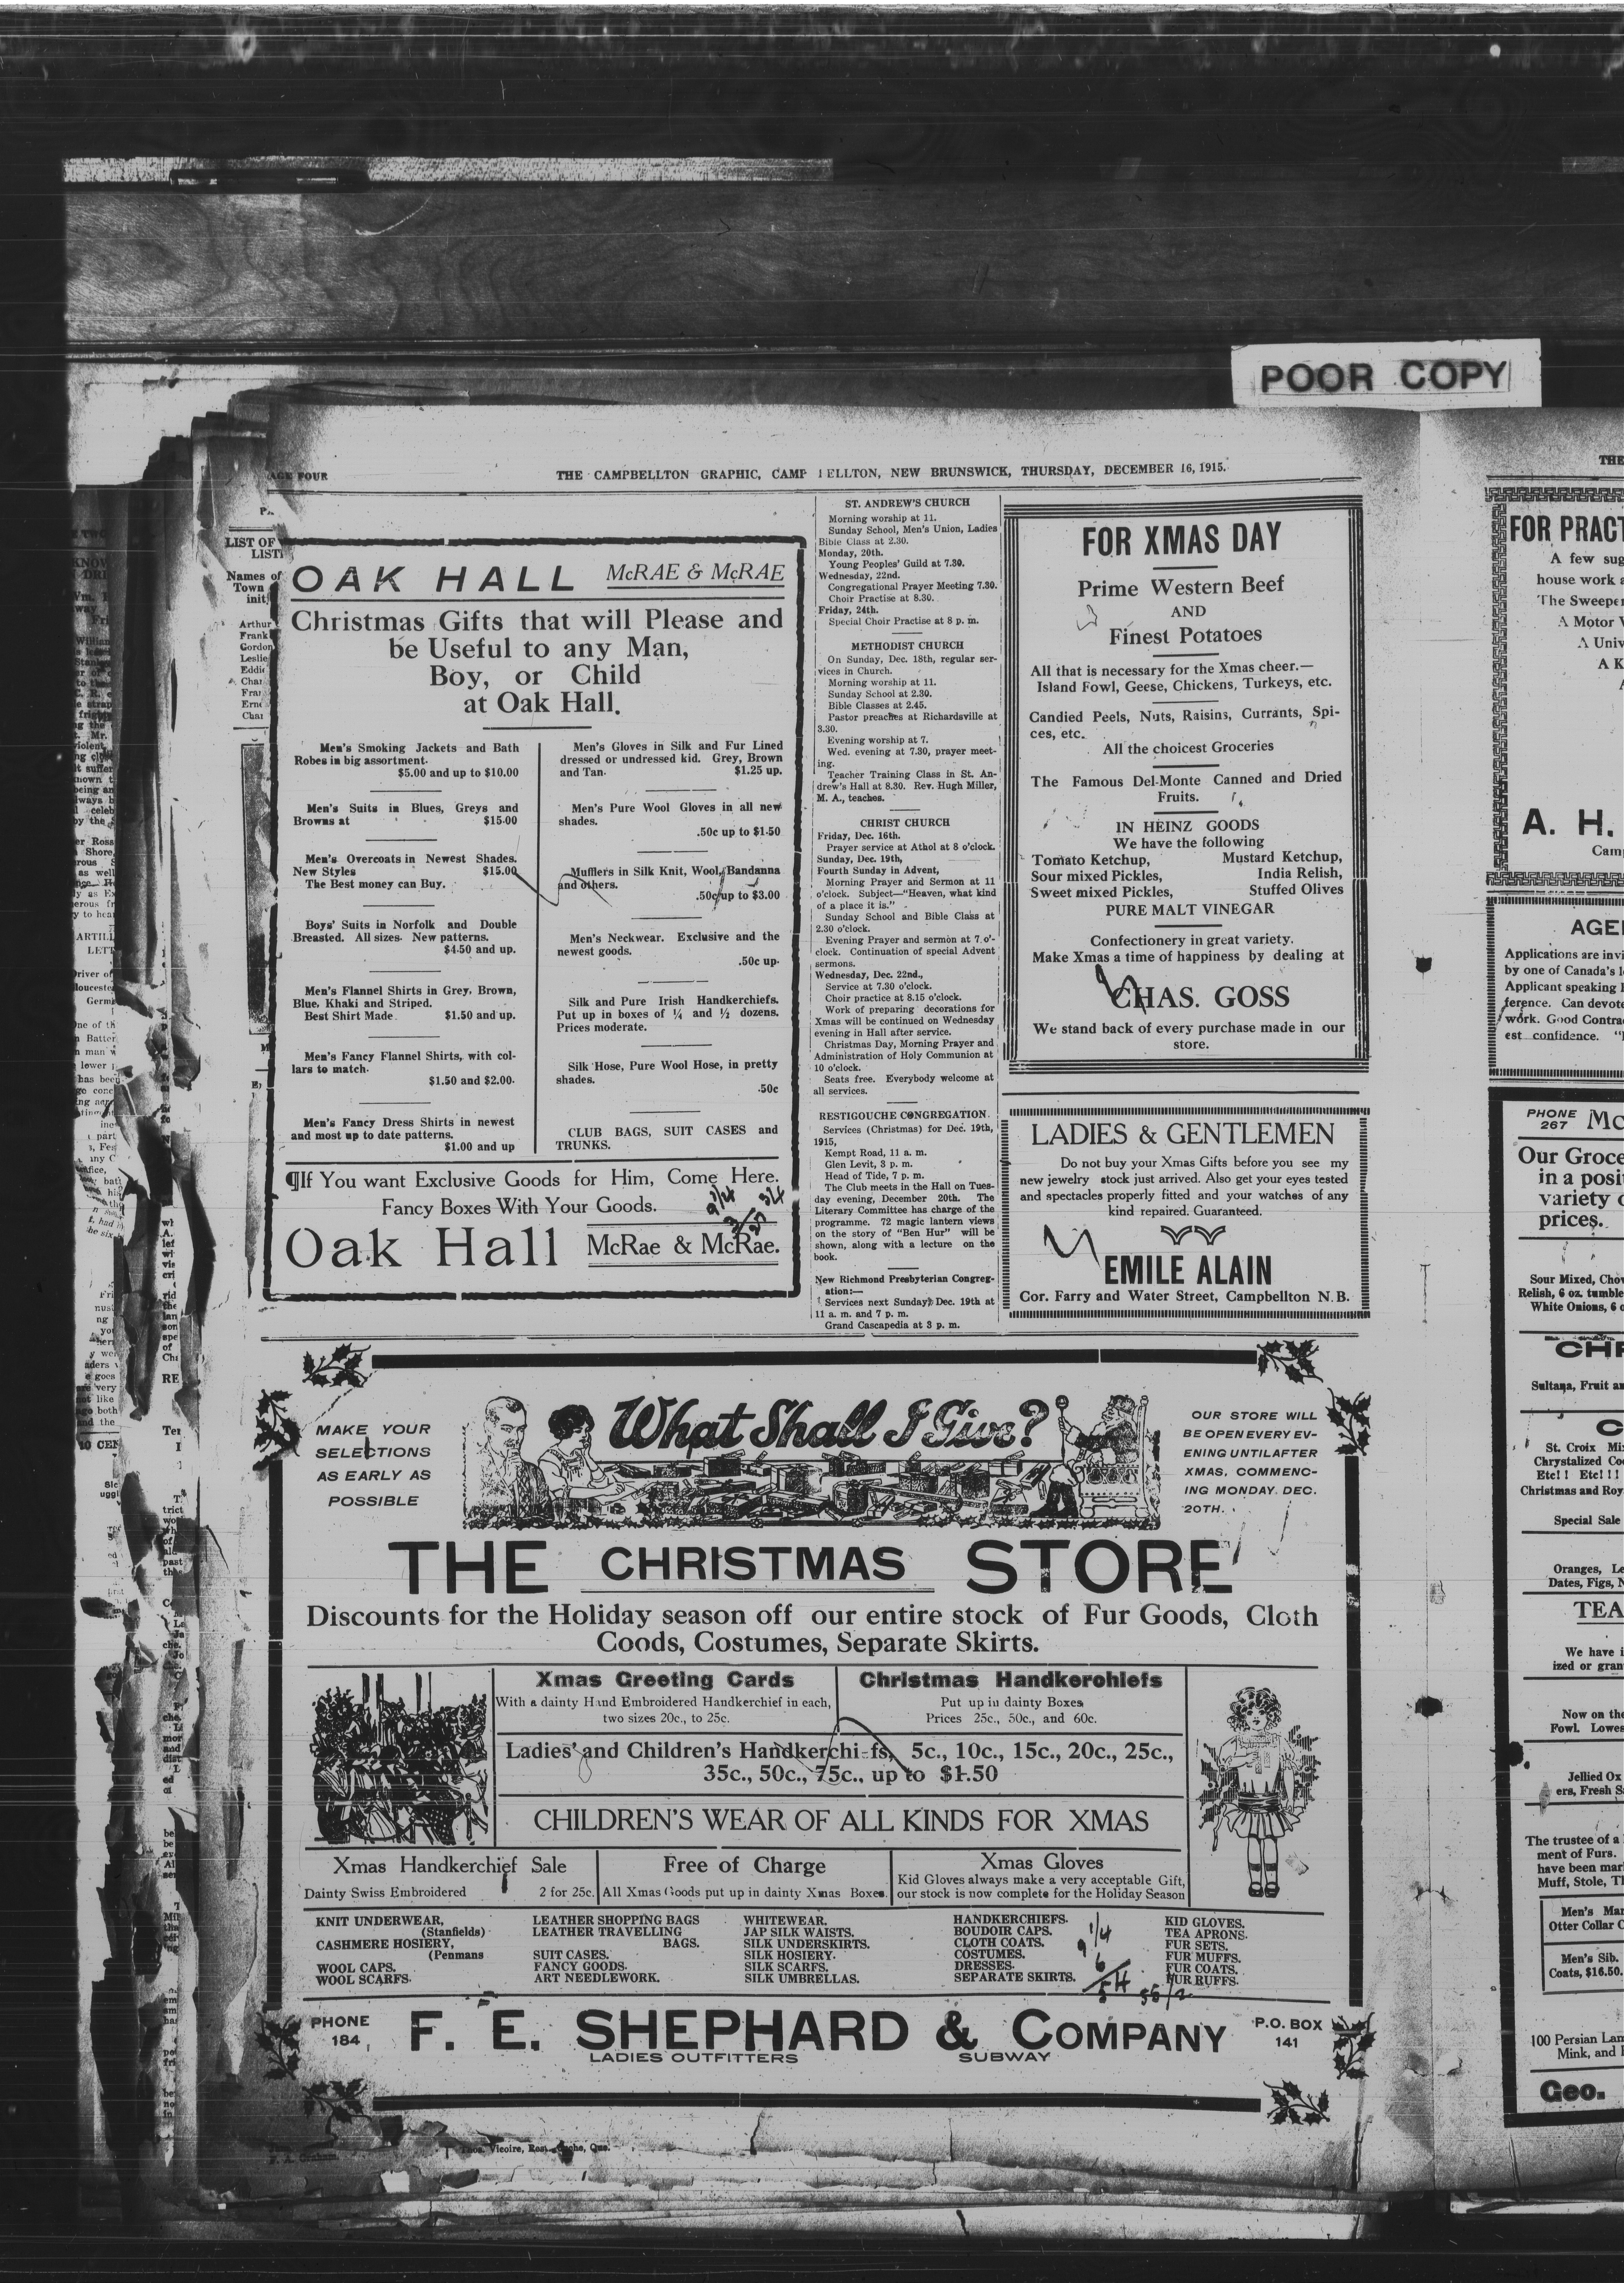 POOR COPY
PAGE FOUR
THE CAMPBELLTON GRAPHIC, CAMP ELLTON, NEW BRUNSWICK, THURSDAY, DECEMBER 16, 1915.
LIST OF
Names of
Town
Arthur
Frank
Gordon
Leslie
OAK HALL McRAE & McRAE
Christmas Gifts that will Please and
be Useful to any Man,
Boy, or Child
at Oak Hall.
Men's Smoking Jackets and Bath
Robes in big assortment.
$5.00 and up to $10.00
Men's Suits in Blues, Greys and
Browns at $15.00
Men's Overcoats in Newest Shades.
New Styles $15.00
The Best money can Buy.
Boys' Suits in Norfolk and Double
Breasted. All sizes. New patterns.
$4.50 and up.
Men's Flannel Shirts in Grey, Brown,
Blue, Khaki and Striped.
Best Shirt Made $1.50 and up.
Men's Fancy Flannel Shirts, with col-
lars to match.
$1.50 and $2.00.
Men's Fancy Dress Shirts in newest
and most up to date patterns.
$1.00 and up
Men's Gloves in Silk and Fur Lined
dressed or undressed kid. Grey, Brown
and Tan. $1.25 up.
Men's Pure Wool Gloves in all new
shades.
.50c up to $1.50
Mufflers in Silk Knit, Wool, Bandanna
and others.
.50c up to $3.00
Men's Neckwear. Exclusive and the
newest goods.
.50c up.
Silk and Pure Irish Handkerchiefs.
Put up in boxes of ¼ and ½ dozens.
Prices moderate.
Silk Hose, Pure Wool Hose, in pretty
shades.
.50c
CLUB BAGS, SUIT CASES and
TRUNKS.
¶If You want Exclusive Goods for Him, Come Here.
Fancy Boxes With Your Goods.
Oak Hall McRae & McRae.
ST. ANDREW'S CHURCH
Morning worship at 11.
Sunday School, Men's Union, Ladies
Bible Class at 2.30.
Monday, 20th.
Young Peoples' Guild at 7.30.
Wednesday, 22nd.
Congregational Prayer Meeting 7.30.
Choir Practise at 8.30.
Friday, 24th.
Special Choir Practise at 8 p. m.
METHODIST CHURCH
On Sunday, Dec. 18th, regular ser-
vices in Church.
Morning worship at 11.
Sunday School at 2.30.
Bible Classes at 2.45.
Pastor preaches at Richardsville at
3.30.
Evening worship at 7.
Wed. evening at 7.30, prayer meet-
ing.
Teacher Training Class in St. An-
drew's Hall at 8.30. Rev. Hugh Miller,
M. A., teaches.
CHRIST CHURCH
Friday, Dec. 16th.
Prayer service at Athol at 8 o'clock.
Sunday, Dec. 19th,
Fourth Sunday in Advent,
Morning Prayer and Sermon at 11
o'clock. Subject—"Heaven, what kind
of a place it is."
Sunday School and Bible Class at
2.30 o'clock.
Evening Prayer and sermon at 7 o'-
clock. Continuation of special Advent
sermons.
Wednesday, Dec. 22nd.,
Service at 7.30 o'clock.
Choir practice at 8.15 o'clock.
Work of preparing decorations for
Xmas will be continued on Wednesday
evening in Hall after service.
Christmas Day, Morning Prayer and
Administration of Holy Communion at
10 o'clock.
Seats free. Everybody welcome at
all services.
RESTIGOUCHE CONGREGATION.
Services (Christmas) for Dec. 19th,
1915,
Kempt Road, 11 a. m.
Glen Levit, 3 p. m.
Head of Tide, 7 p. m.
The Club meets in the Hall on Tues-
day evening, December 20th. The
Literary Committee has charge of the
programme. 72 magic lantern views
on the story of "Ben Hur" will be
shown, along with a lecture on the
book.
New Richmond Presbyterian Congreg-
ation:—
Services next Sunday, Dec. 19th at
11 a. m. and 7 p. m.
Grand Cascapedia at 3 p. m.
FOR XMAS DAY
Prime Western Beef
AND
Finest Potatoes
All that is necessary for the Xmas cheer.—
Island Fowl, Geese, Chickens, Turkeys, etc.
Candied Peels, Nuts, Raisins, Currants, Spi-
ces, etc.
All the choicest Groceries
The Famous Del-Monte Canned and Dried
Fruits.
IN HEINZ GOODS
We have the following
Tomato Ketchup, Mustard Ketchup,
Sour mixed Pickles, India Relish,
Sweet mixed Pickles, Stuffed Olives
PURE MALT VINEGAR
Confectionery in great variety.
Make Xmas a time of happiness by dealing at
CHAS. GOSS
We stand back of every purchase made in our
store.
LADIES & GENTLEMEN
Do not buy your Xmas Gifts before you see my
new jewelry stock just arrived. Also get your eyes tested
and spectacles properly fitted and your watches of any
kind repaired. Guaranteed.
EMILE ALAIN
Cor. Farry and Water Street, Campbellton N.B.
MAKE YOUR
SELECTIONS
AS EARLY AS
POSSIBLE
What Shall I Give?
OUR STORE WILL
BE OPEN EVERY EV-
ENING UNTIL AFTER
XMAS, COMMENC-
ING MONDAY. DEC.
20TH.
THE CHRISTMAS STORE
Discounts for the Holiday season off our entire stock of Fur Goods, Cloth
Coods, Costumes, Separate Skirts.
Xmas Greeting Cards
With a dainty Hand Embroidered Handkerchief in each,
two sizes 20c., to 25c.
Christmas Handkerohiefs
Put up in dainty Boxes
Prices 25c., 50c., and 60c.
Ladies' and Children's Handkerchi-fs, 5c., 10c., 15c., 20c., 25c.,
35c., 50c., 75c., up to $1.50
CHILDREN'S WEAR OF ALL KINDS FOR XMAS
Xmas Handkerchief Sale
Dainty Swiss Embroidered 2 for 25c.
Free of Charge
All Xmas Goods put up in dainty Xmas Boxes.
Xmas Gloves
Kid Gloves always make a very acceptable Gift,
our stock is now complete for the Holiday Season
KNIT UNDERWEAR,
(Stanfields)
CASHMERE HOSIERY,
(Penmans
WOOL CAPS.
WOOL SCARFS.
LEATHER SHOPPING BAGS
LEATHER TRAVELLING
BAGS.
SUIT CASES.
FANCY GOODS.
ART NEEDLEWORK.
WHITEWEAR.
JAP SILK WAISTS.
SILK UNDERSKIRTS.
SILK HOSIERY.
SILK SCARFS.
SILK UMBRELLAS.
HANDKERCHIEFS.
BOUDOIR CAPS.
CLOTH COATS.
COSTUMES.
DRESSES.
SEPARATE SKIRTS.
KID GLOVES.
TEA APRONS.
FUR SETS.
FUR MUFFS.
FUR COATS.
FUR RUFFS.
PHONE
184
F. E. SHEPHARD & COMPANY
LADIES OUTFITTERS SUBWAY
P.O. BOX
141
THE
FOR PRACT
A few sug
house work
The Sweeper
A Motor
A. H.
AGE
Applications are invi
by one of Canada's
Applicant speaking
ference. Can devote
work. Good Contra
est confidence.
PHONE
267
Our Groce
in a posi
variety
prices.
Relish, 6 oz. tumble
White Onions, 6
Sultana, Fruit
St. Croix
Etc!! Etc!!!
Christmas and Roy
Special Sale
Oranges,
Dates, Figs,
TEA
We have
ized or gran
Now on the
Fowl. Lowes
Jellied Ox
ers, Fresh
The trustee of a
ment of Furs.
have been mar
Muff, Stole,
Men's
Otter Collar
Men's Sib.
Coats, $16.50.
100 Persian Lam
Mink, and
Geo.